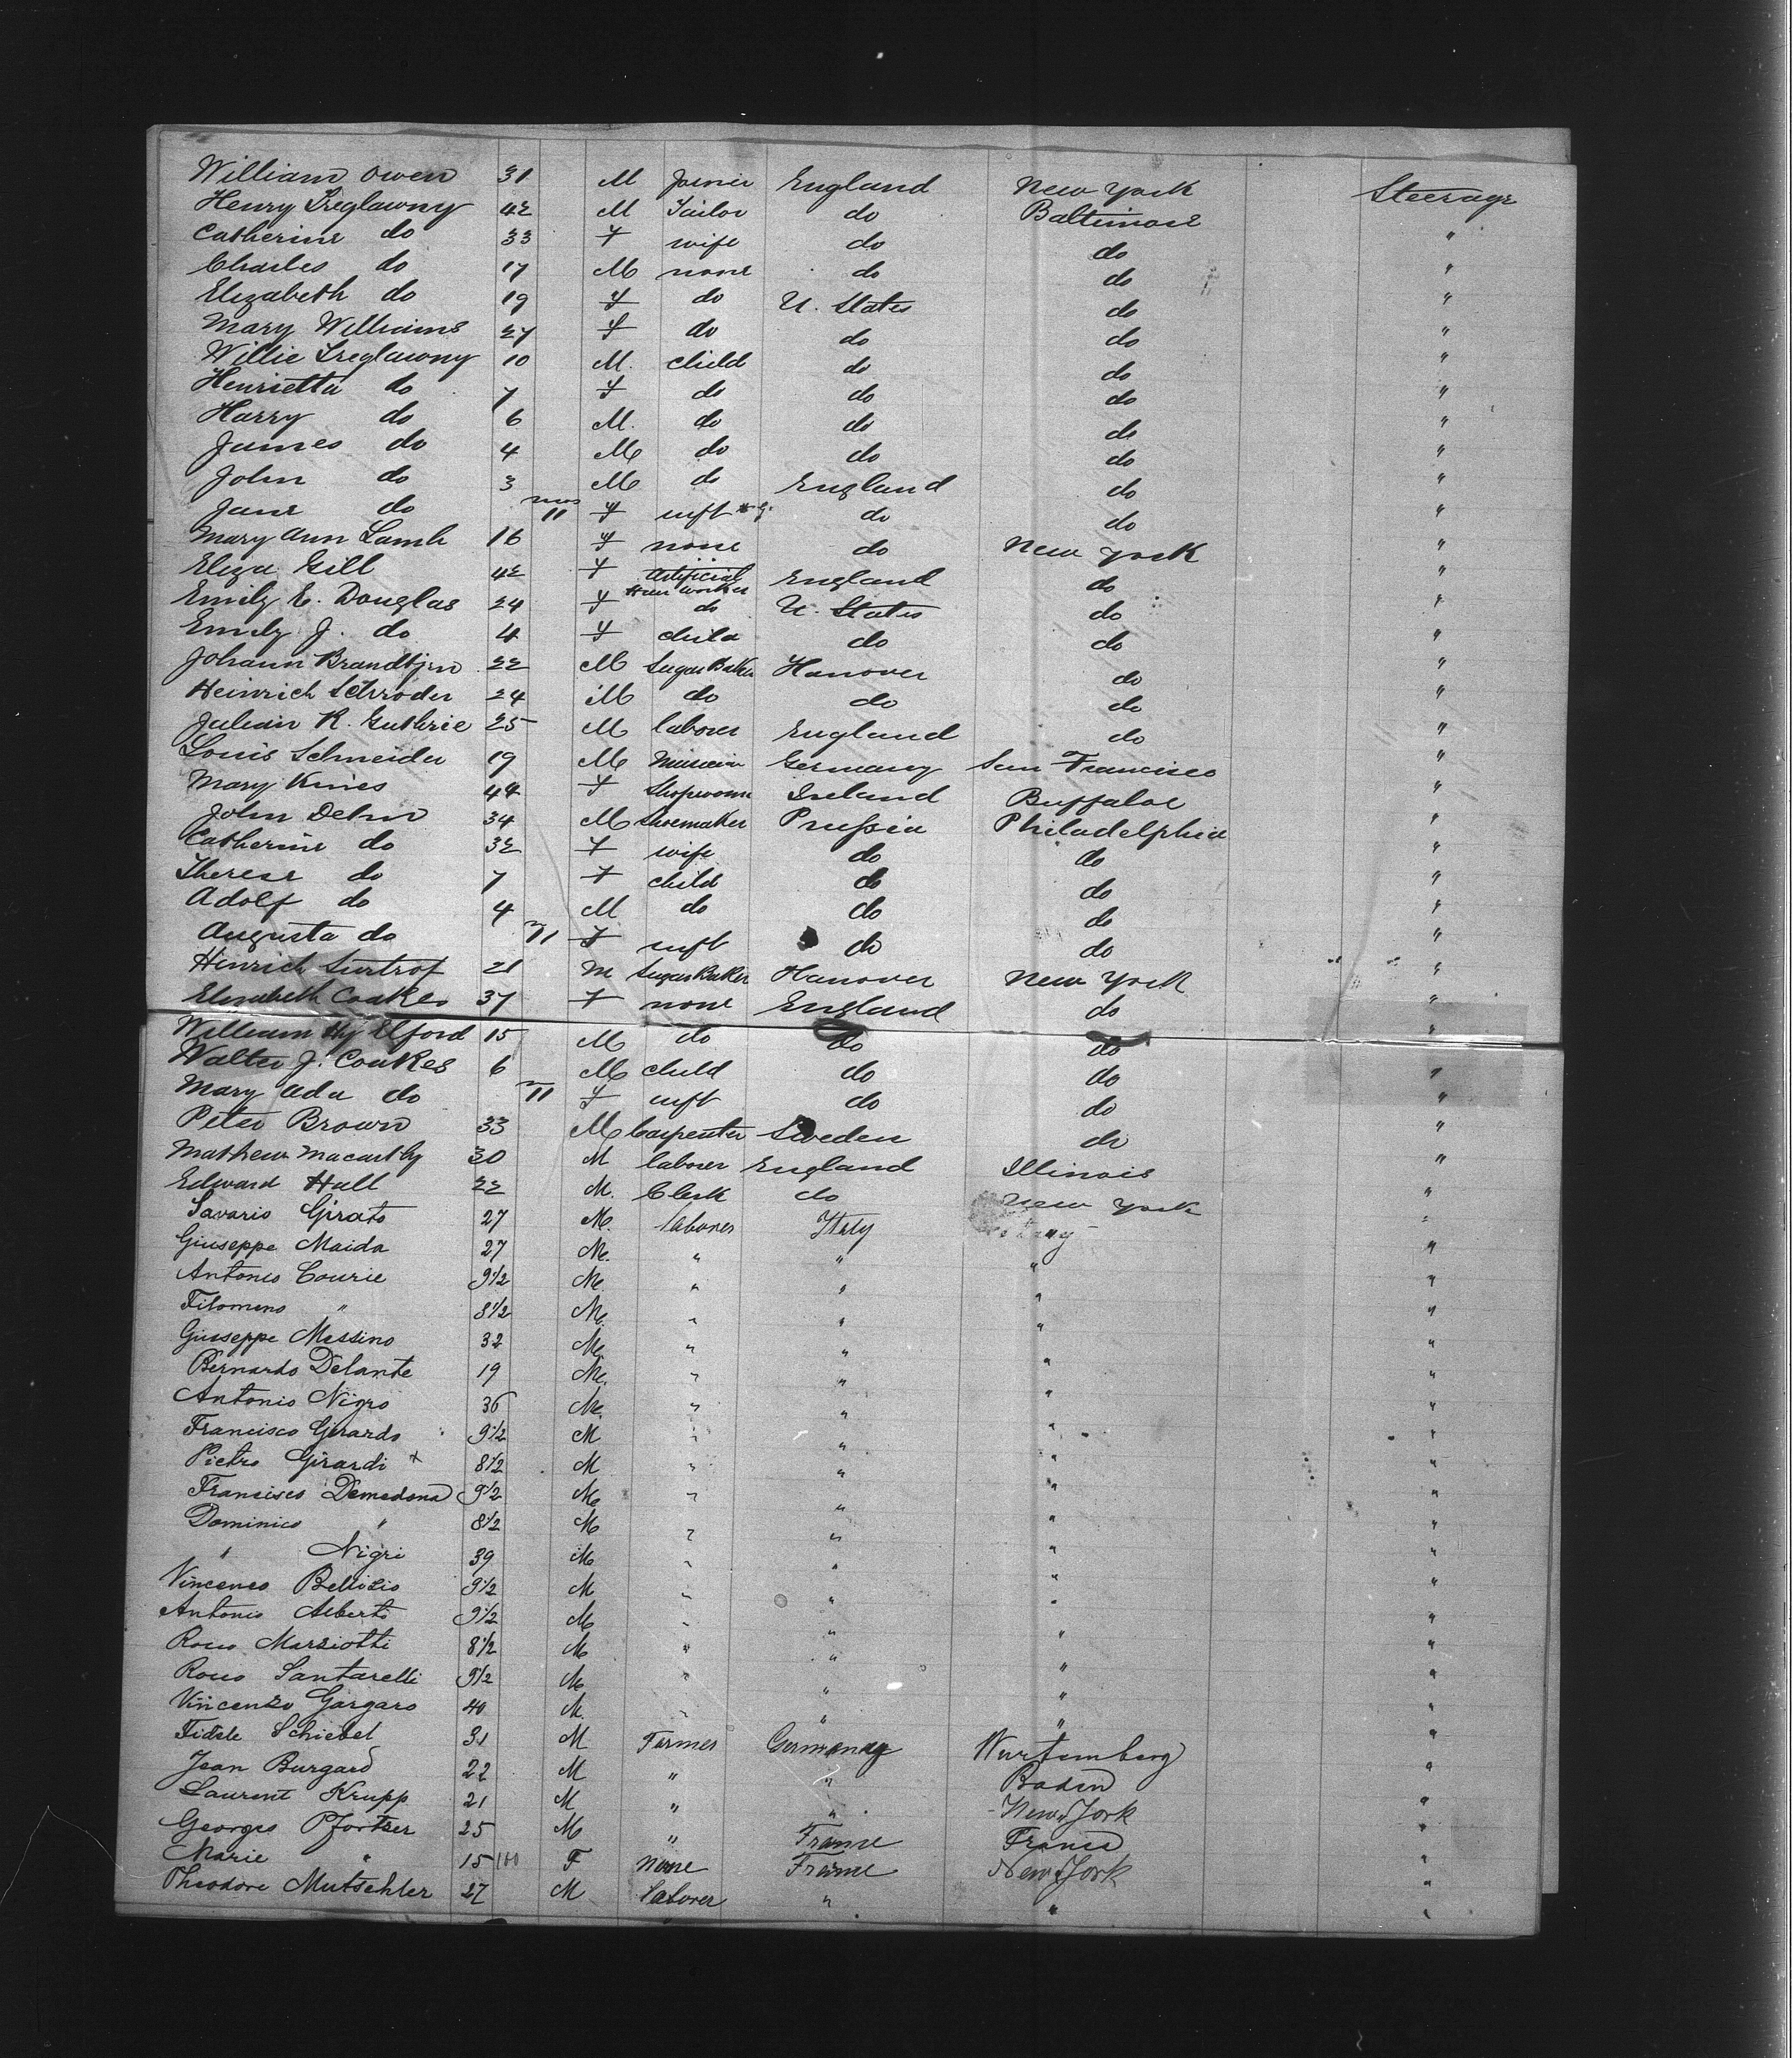 William Owen 31 M Joiner England New York Steerage
Henry Treglawny 42 M Tailor do Baltimore "
Catherine do 33 F wife do do "
Charles do 17 M none do do "
Elizabeth do 19 F do U. States do "
Mary Williams 27 F do do do "
Willie Treglawny 10 M. child do do "
Henrietta do 7 F do do do "
Harry do 6 M. do do do "
James do 4 M do do do "
John do 3 M do England do "
Jane do mos 11 F inft do do "
Mary Ann Lamb 16 F none do New York "
Eliza Gill 42 F Artificial Hair worker England do "
Emily E. Douglas 24 F do U. States do "
Emily J. do 4 F child do do "
Johann 22 M Sugar Baker Hanover do "
Heinrich Schroder 24 M do do do "
Julian R. Guthrie 25 M laborer England do "
Louis Schneider 19 M Musician Germany San Francisco "
Mary Vines 44 F Shopwoman Ireland Buffaloe "
John Dehn 34 M Shoemaker Prussia Philadelphia "
Catherine do 32 F wife do do "
Therese do 7 F child do do "
Adolf do 4 M do do do "
Augusta do m 11 F inft do do "
Hinrich 21 M Sugar Baker Hanover New York "
Elizabeth Coakes 37 F none England do "
William Hy Elford 15 M do do do "
Walter J. Coakes 6 M child do do "
Mary Ada do m 11 F inft do do "
Peter Brown 33 M Carpenter Sweden do "
Mathew Macarthy 30 M laborer England Illinois "
Edward Hull 22 M. Clerk do New York "
Savario Girato 27 M. laborer Italy "
Giuseppe Maida 27 M. " " " "
Antonio Courie 9 1/2 M. " " " "
Filomeno " 8 1/2 M. " " " "
Giuseppe Messino 32 M. " " " "
Bernardo Delante 19 M. " " " "
Antonio Nigro 36 M. " " " "
Francisco Girardo 9 1/2 M " " " "
Pietro Girardi x 8 1/2 M " " " "
Francisco Demadona 9 1/2 M. " " " "
Dominico " 8 1/2 M " " " "
" Nigri 39 M " " " "
Vincenco Bellisio 9 1/2 M " " " "
Antonio Alberti 9 1/2 M " " " "
Rocco Marsiotti 8 1/2 M " " " "
Rocco Santarelli 9 1/2 M " " " "
Vincenzo Gargaro 40 M. " " " "
Fidele Schiebel 31 M Farmer Germany Wurtemberg "
Jean Burgard 22 M " " Baden "
Laurent Krupp 21 M " " New York "
Georges Pfortzer 25 M " France France "
Marie " 15 100 F none France New York "
Theodore Mutschler 27 M laborer " " "